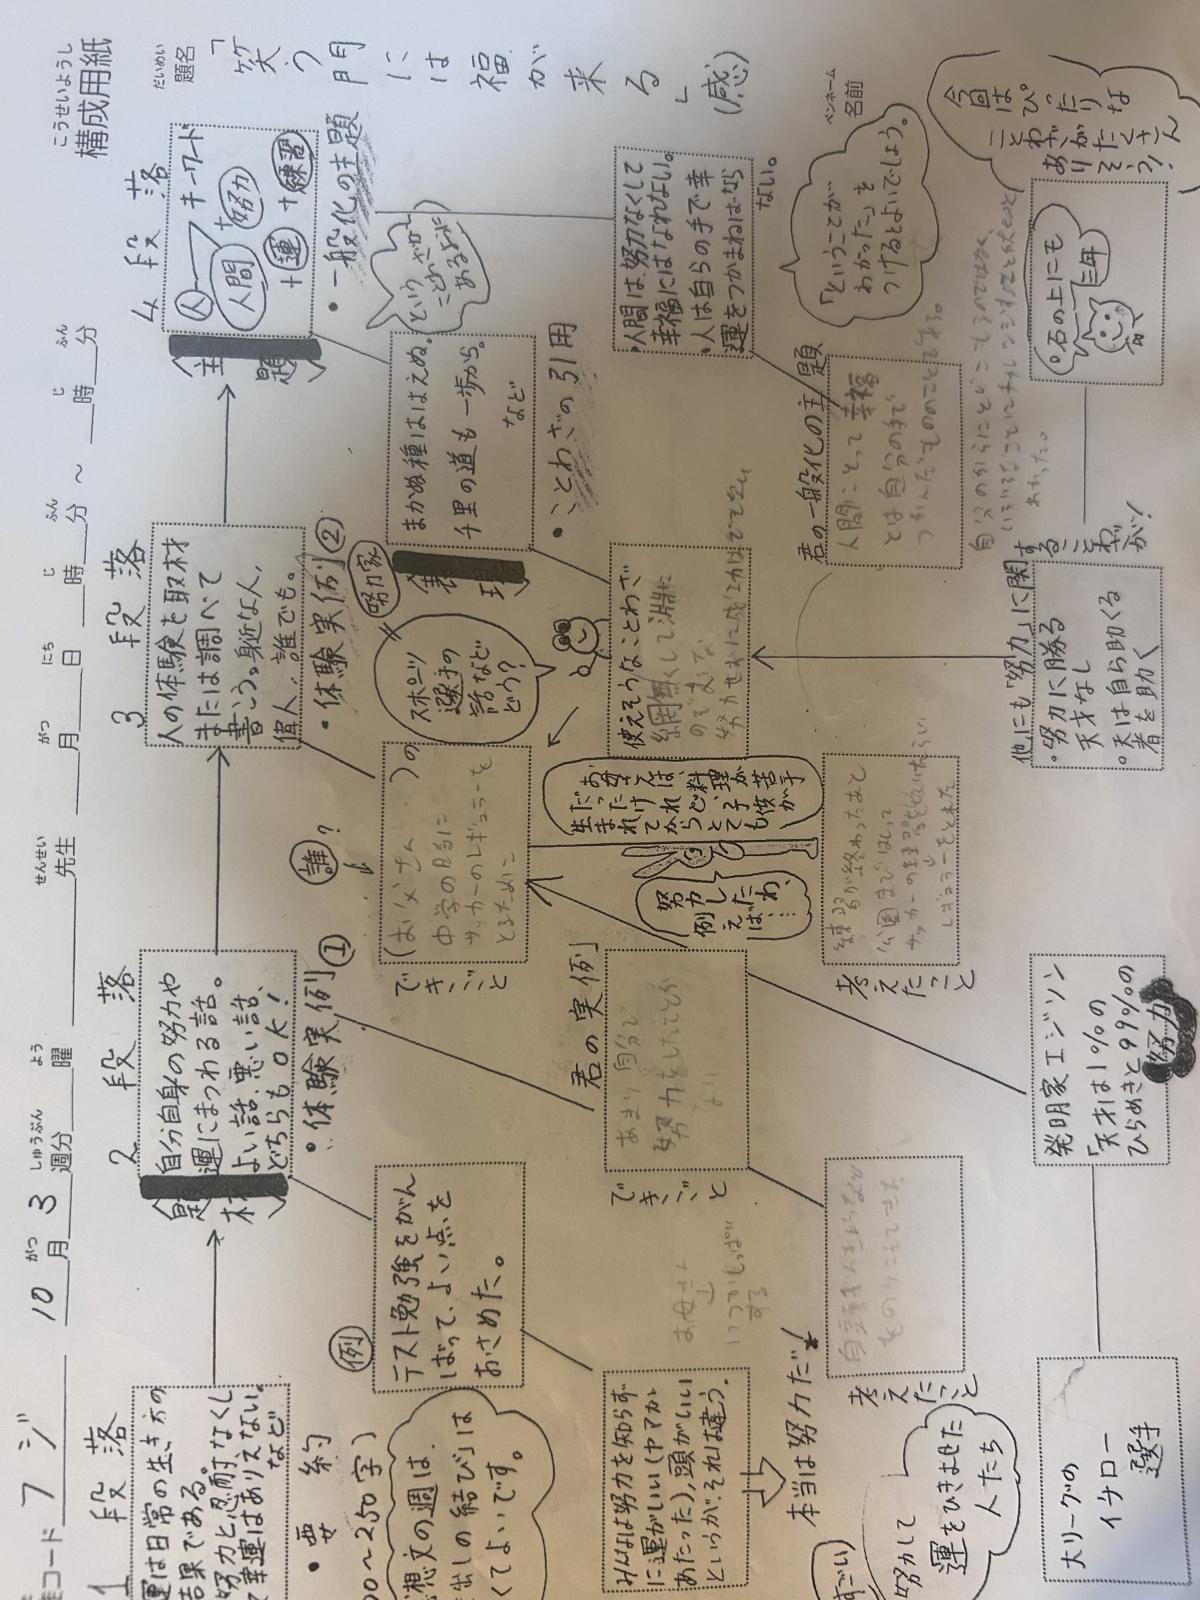 こうせいようし
構成用紙
だいめい
題名
「笑う門には福が来る」(感)
ペンネーム
名前
コード フジ
10月3週分 曜 先生 月 日 時 分 ～ 時 分
がつ しゅうぶん よう せんせい がつ にち じ ふん じ ふん
1段落
運は日常の生き方の
結果である。
努力と忍耐なくし
て幸運はありえない。
など
・要約
～250字)
想文の週は
出しの結び」は
くてよいです。
2段落
題材
自分自身の努力や
運にまつわる話。
よい話、悪い話、
どちらもOK!
・体験実例①
例
テスト勉強をがん
ばって、よい点を
おさめた。
みんなは努力を知らず
に運がいい(ヤマが
あたった)、頭がいい
というが、それは違う。
本当は努力だ!
君の実例
できごと
あまり自分で
努力をしたことが
ない
考えたこと
努力して
運をひきよせた
人たち
すごい
大リーグの
イチロー
選手
発明家エジソン
「天才は1%の
ひらめきと99%の
努力
3段落
人の体験を取材
または調べて
書こう。身近な人、
偉人、誰でも。
・体験実例②
努力家
スポーツ
選手の
話など
どう?
誰?
できごと
(お父さん )の
中学の時に
サッカーのレギュラーを
とるために
お母さんは、
料理が苦手
だったけれど、子供が
生まれてからとても
努力したわ、
例えば…
考えたこと
練習が終わったあと
公園まではしって
サッカーの練習を
レギュラーをとれた
表現
まかぬ種ははえぬ。
千里の道も一歩から。
など
・ことわざの引用
使えそうなことわざ
網無くして淵に
のぞむな
他にも「努力」に関
することわざが!
・努力に勝る
天才なし
・天は自ら助くる
者を助く
4段落
主題
人
キーワード
人間
+努力
+運
+練習
・一般化の主題
という
ことわざが
あるように
・人間は努力なくして
幸福にはなれない。
・人は自らの手で幸
運をつかまねばなら
ない。
「ということが
わかった」を
つけるとよいでしょう。
君の一般化の主題
人間にとって幸福
とは自分の手で
つかんだもののことである。
わかった。
石の上にも
三年
今回はぴったりな
ことわざがたくさん
ありそう!